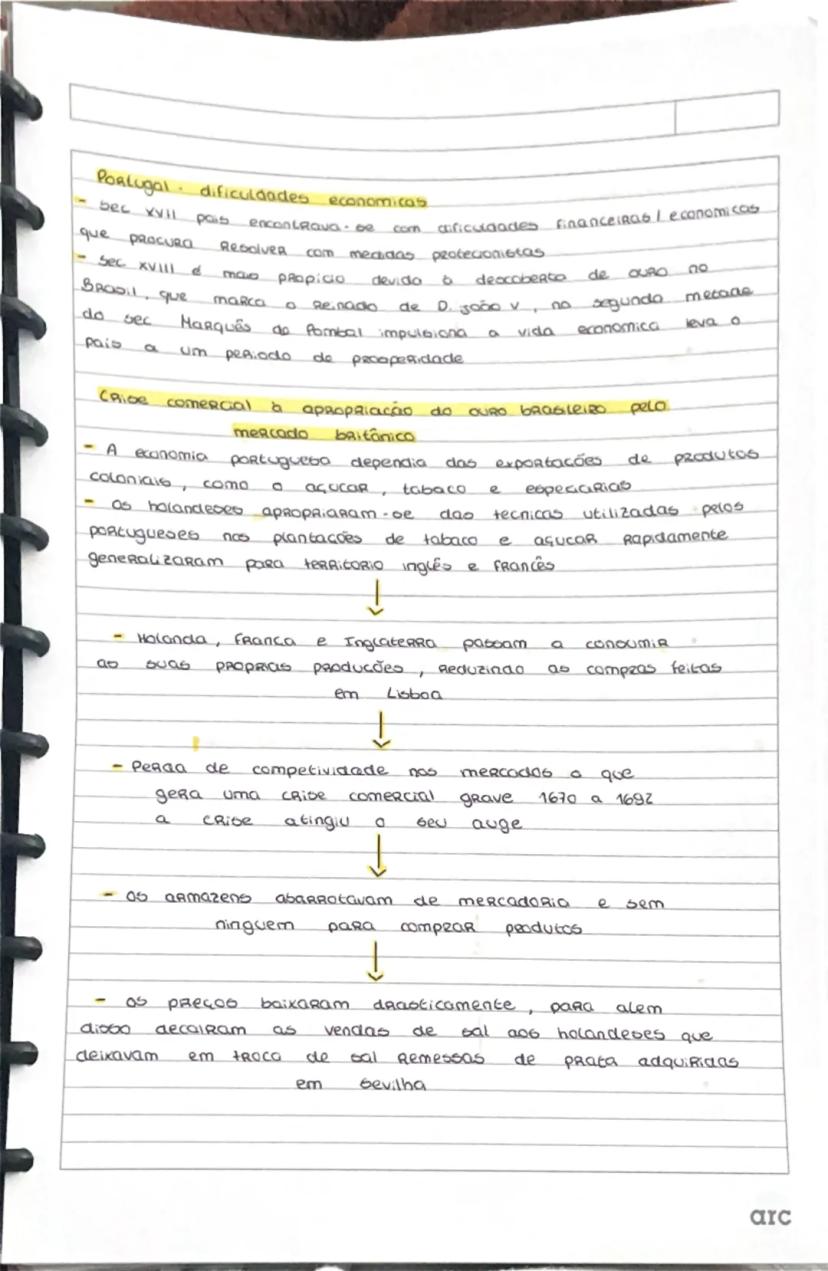 Portugal - dificuldades economicas
- sec XVII pais encontrava-se com dificuldades financeiras/economicas
que procura resolver com medidas protecionistas
- sec XVIII é mais propicio devido à descoberta de ouro no
Brasil, que marca o reinado de D. João V, na segunda metade
do sec Marquês de Pombal impulsiona a vida economica leva o
pais a um periodo de prosperidade
Crise comercial à apropriação do ouro brasileiro pelo
mercado britânico
- A economia portuguesa dependia das exportações de produtos
coloniais, como o açucar, tabaco e especiarias
- os holandeses apropriaram-se das tecnicas utilizadas pelos
portugueses nas plantações de tabaco e açucar rapidamente
generalizaram para territorio inglês e francês
↓
- Holanda, França e Inglaterra passam a consumir
as suas proprias produções, reduzindo as compras feitas
em Lisboa
↓
- Perda de competividade nos mercados o que
gera uma crise comercial grave 1670 a 1692
a crise atingiu o seu auge
↓
- os armazens abarrotavam de mercadoria e sem
ninguem para comprar produtos
↓
- os preços baixaram drasticamente, para alem
disso decairam as vendas de sal aos holandeses que
deixavam em troca de sal remessas de prata adquiridas
em Sevilha
arc